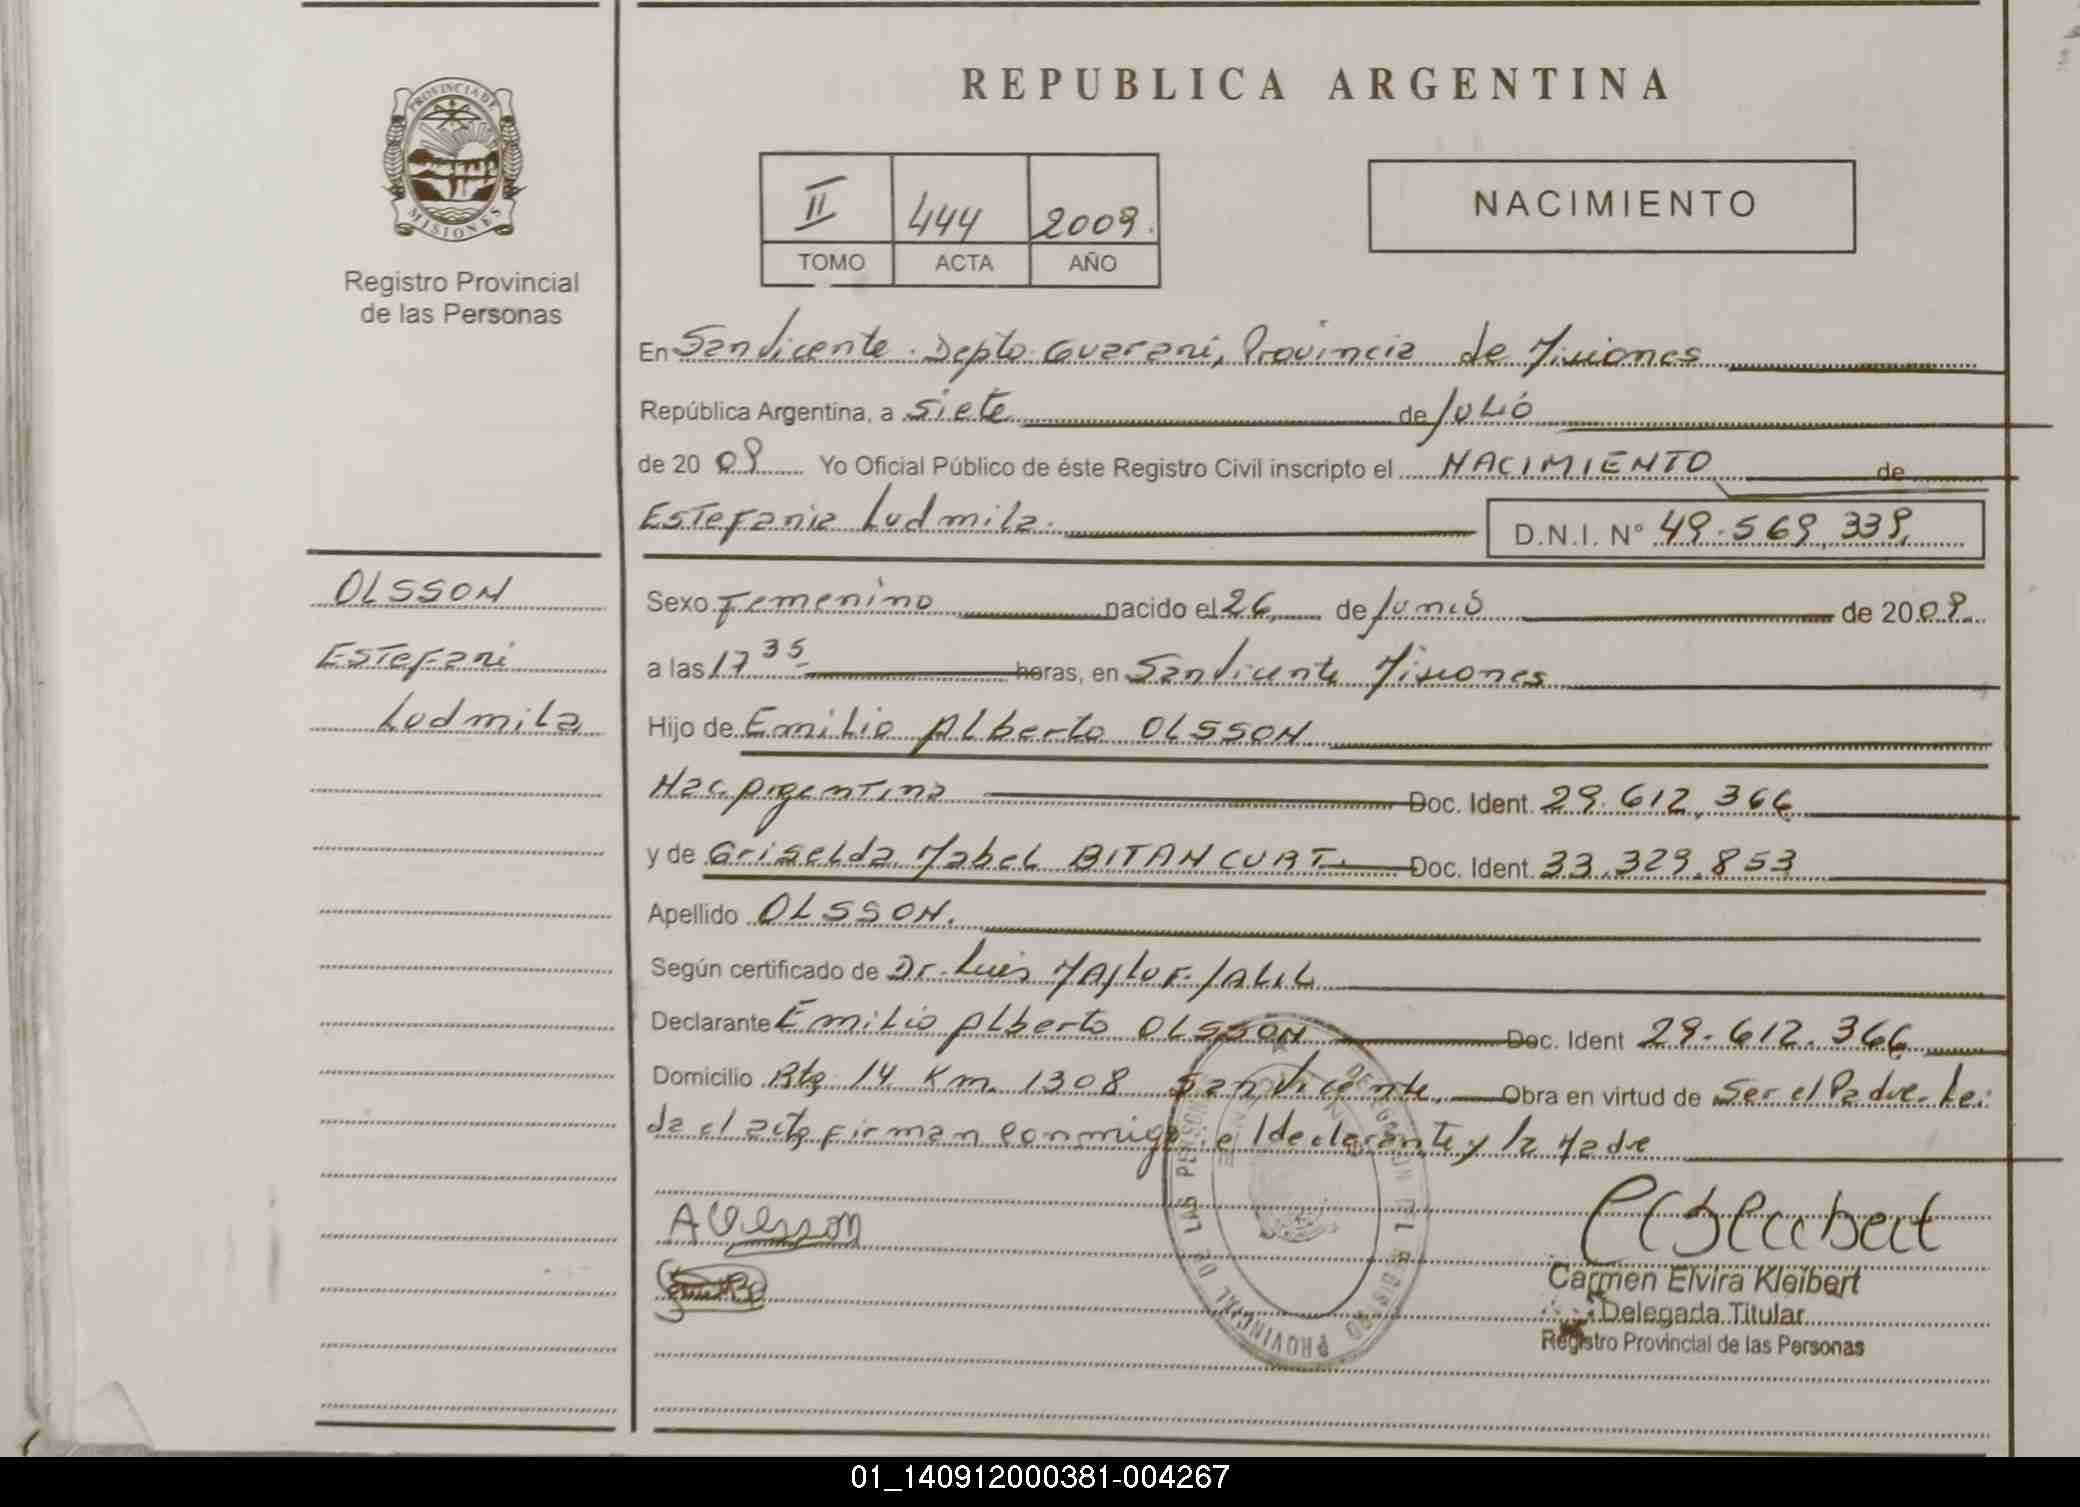 REPUBLICA ARGENTINA
PROVINCIA DE
MISIONES
Registro Provincial
de las Personas
II 444 2009.
TOMO ACTA AÑO
NACIMIENTO
En San Vicente. Depto. Guarani, Provincia de Misiones
República Argentina, a siete de Julio
de 20 09 Yo Oficial Público de éste Registro Civil inscripto el NACIMIENTO de
Estefania Ludmila. D.N.I. Nº 49.569.339.
OLSSON
Estefani
Ludmila
Sexo Femenino nacido el 26 de Junio de 20 09
a las 17 35 horas, en San Vicente Misiones
Hijo de Emilio Alberto OLSSON
Nac Argentina Doc. Ident. 29.612.366
y de Griselda Mabel BITANCURT. Doc. Ident. 33.329.853
Apellido OLSSON.
Según certificado de Dr. Luis
Declarante Emilio Alberto OLSSON Doc. Ident 29.612.366
Domicilio Rta 14 Km. 1308 San Vicente. Obra en virtud de Ser el Padre. Lei
da el acta firman conmigo el declarante y la Madre
DELEGACION
REGISTRO PROVINCIAL DE LAS PERSONAS
Carmen Elvira Kleibert
Delegada Titular
Registro Provincial de las Personas
01_140912000381-004267